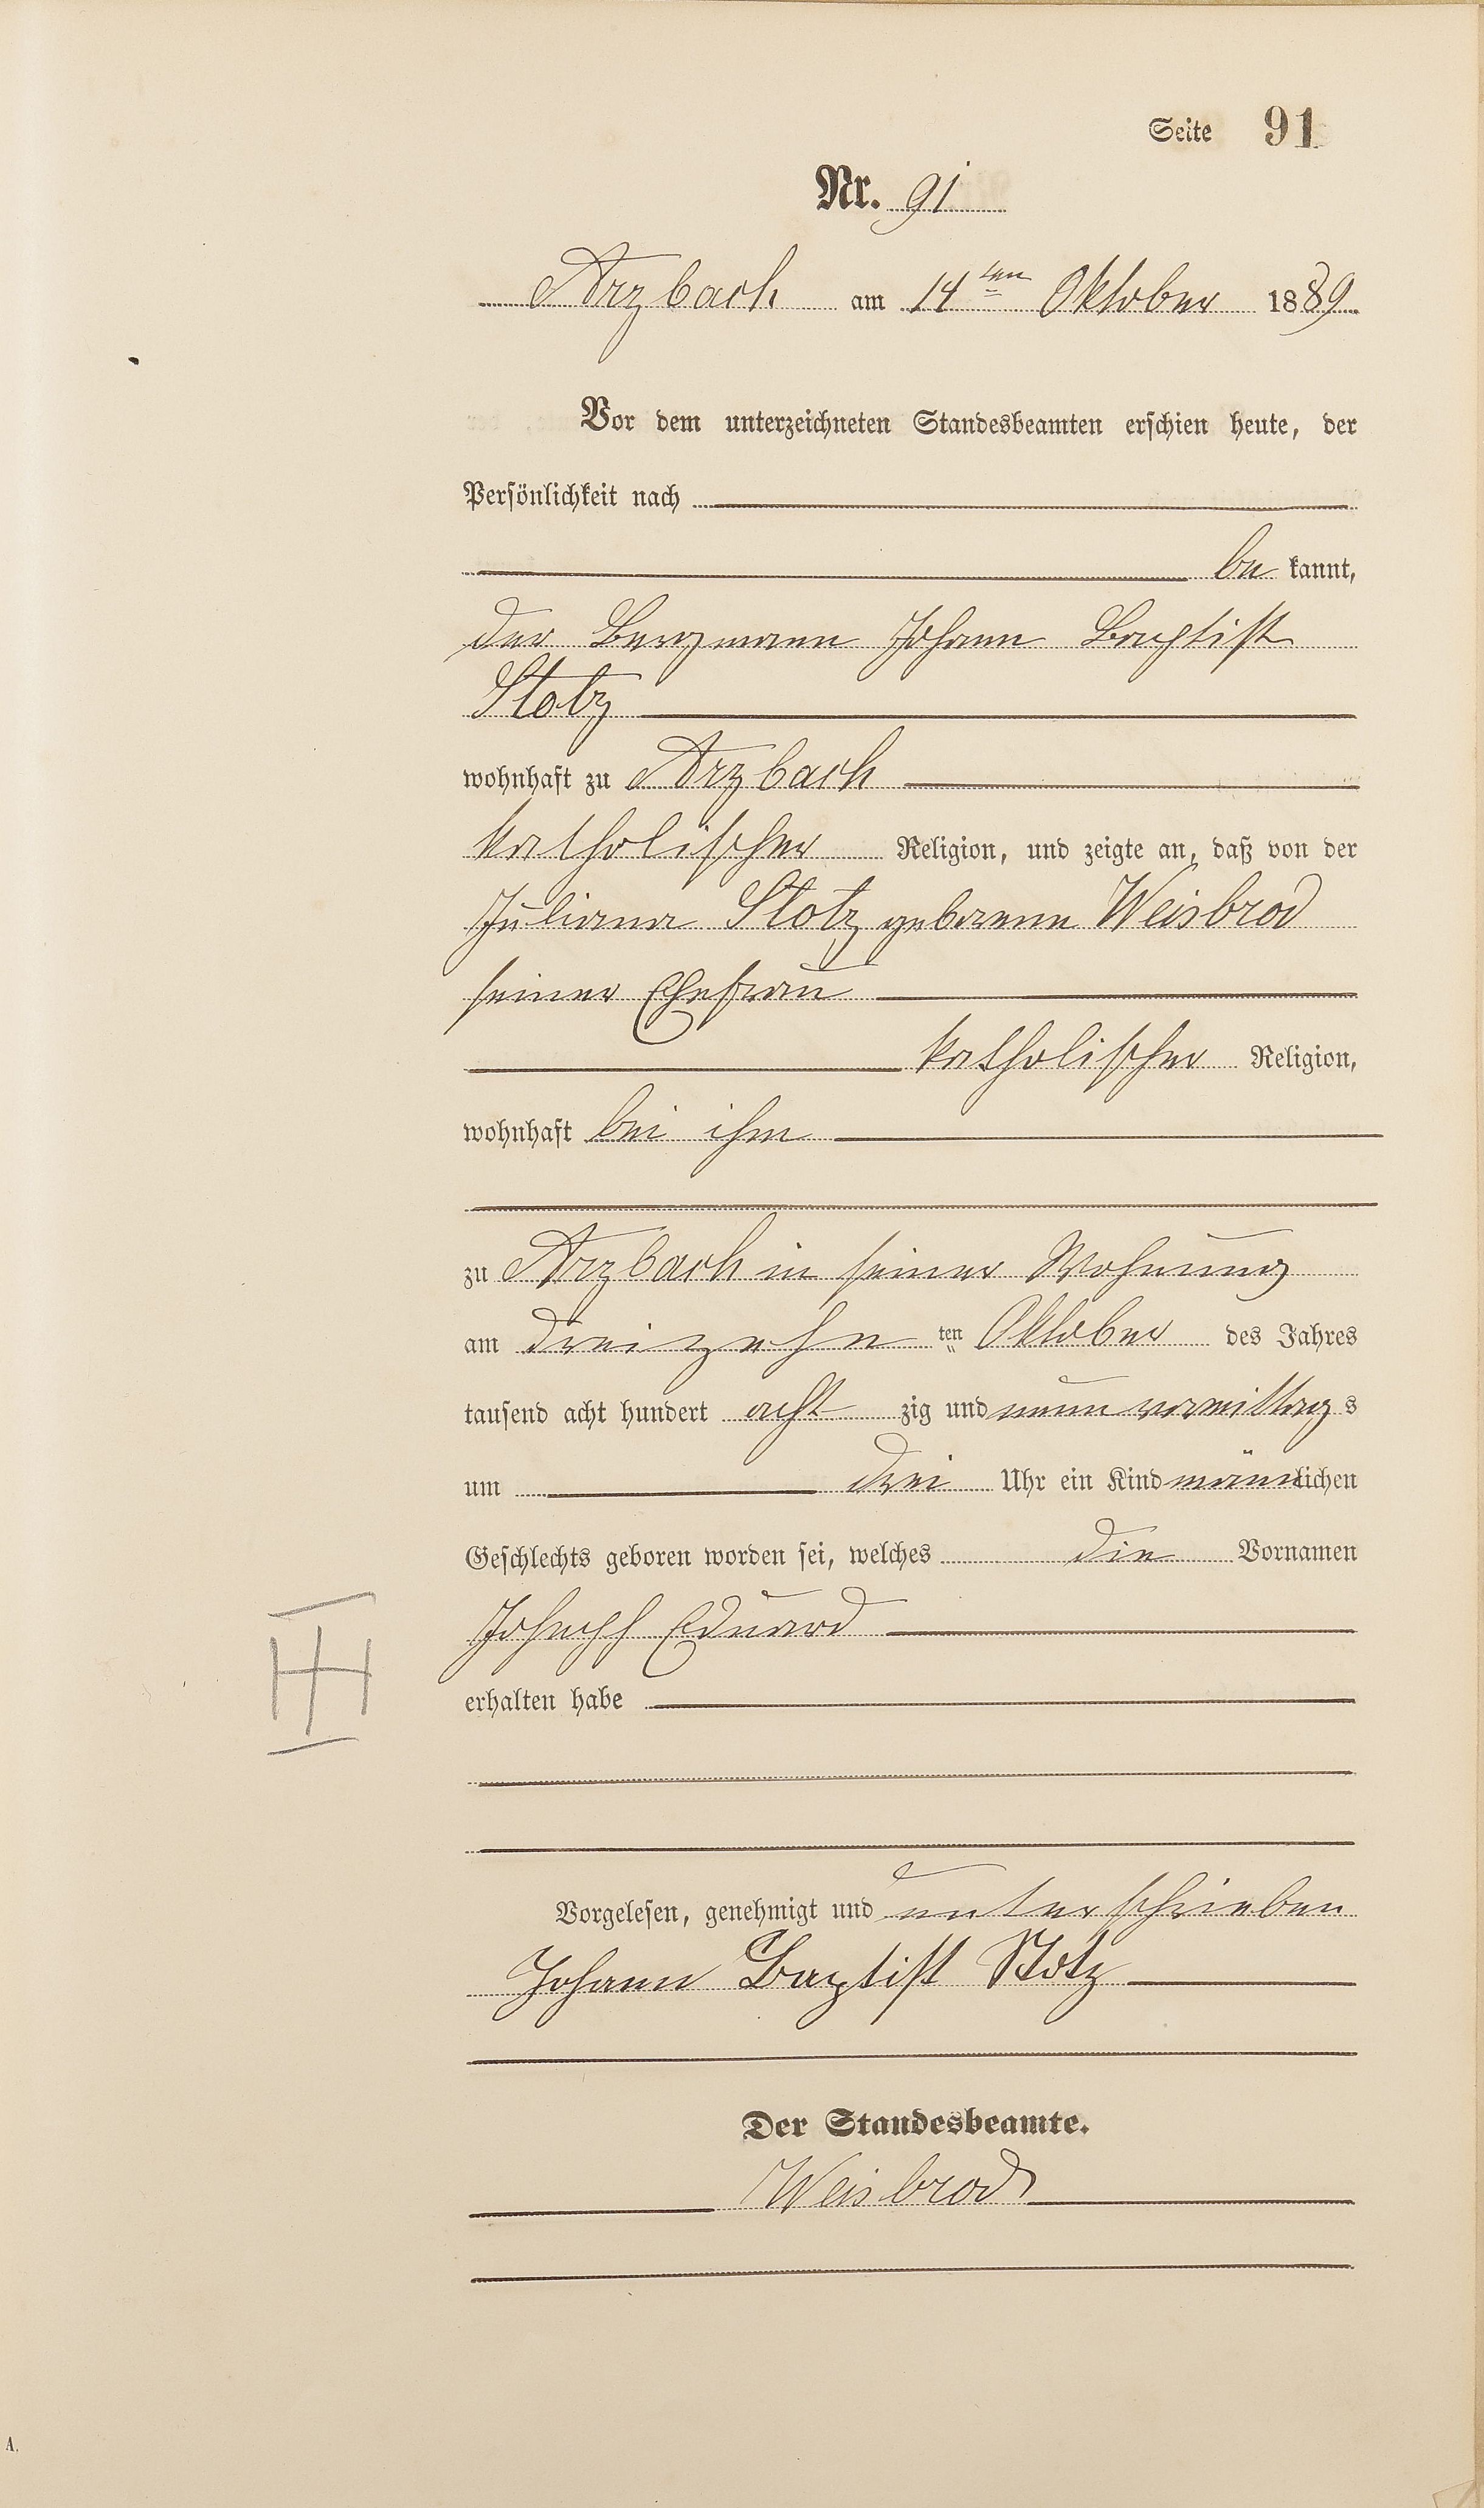 Seite 91
Nr. 91
Arzbach am 14ten Oktober 1889
Vor dem unterzeichneten Standesbeamten erschien heute, der
Persönlichkeit nach
be kannt,
der Bergmann Johann Baptist
Stotz
wohnhaft zu Arzbach
katholischer Religion, und zeigte an, daß von der
Juliana Stotz geborenen Weisbrod
seiner Ehefrau
katholischer Religion,
wohnhaft bei ihm
zu Arzbach in seiner Wohnung
am dreizehn ten Oktober des Jahres
tausend acht hundert acht zig und neun vormittags
um drei Uhr ein Kind männlichen
Geschlechts geboren worden sei, welches die Vornamen
Joseph Eduard
erhalten habe
Vorgelesen, genehmigt und unterschrieben
Johann Baptist Stotz
Der Standesbeamte.
Weisbrod
A.